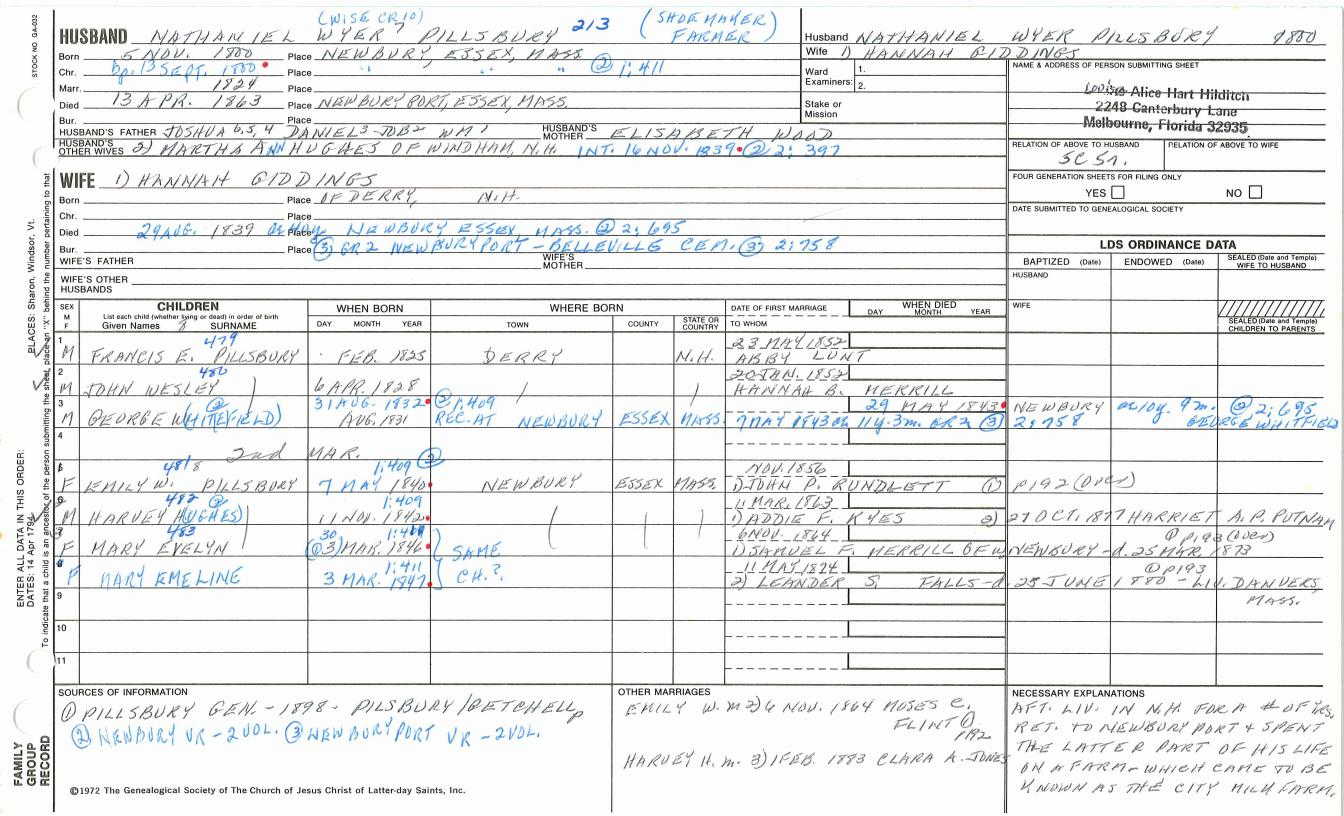 STOCK NO. GA-032
(WISE CR10) 213 (SHOEMAKER)
HUSBAND NATHANIEL WYER 7 PILLSBURY FARMER)
Born 5 NOV. 1800 Place NEWBURY, ESSEX, MASS
Chr. Bp. 13 SEPT. 1800 Place " " " ② 1:411
Marr. 1824 Place
Died 13 APR. 1863 Place NEWBURYPORT, ESSEX, MASS.
Bur. Place
HUSBAND'S FATHER JOSHUA 6, 5, 4 DANIEL 3 - JOB 2 WM 1 HUSBAND'S MOTHER ELISABETH WOOD
HUSBAND'S OTHER WIVES 2) MARTHA ANN HUGHES OF WINDHAM, N.H. INT. 16 NOV. 1839 ② 2:397
Husband NATHANIEL WYER PILLSBURY 1800
Wife 1) HANNAH GIDDINGS
Ward Examiners: 1.
2.
Stake or Mission
NAME & ADDRESS OF PERSON SUBMITTING SHEET
Louise Alice Hart Hilditch
2248 Canterbury Lane
Melbourne, Florida 32935
RELATION OF ABOVE TO HUSBAND RELATION OF ABOVE TO WIFE
5C 5r.
FOUR GENERATION SHEETS FOR FILING ONLY
YES NO
DATE SUBMITTED TO GENEALOGICAL SOCIETY
WIFE 1) HANNAH GIDDINGS
Born Place OF DERRY, N.H.
Chr. Place
Died 29 AUG. 1839 Place NEWBURY ESSEX MASS. ② 2:695
Bur. Place ③ GR2 NEWBURYPORT - BELLEVILLE CEM. ③ 2:758
WIFE'S FATHER WIFE'S MOTHER
WIFE'S OTHER HUSBANDS
LDS ORDINANCE DATA
BAPTIZED (Date) ENDOWED (Date) SEALED (Date and Temple) WIFE TO HUSBAND
HUSBAND
WIFE
SEALED (Date and Temple) CHILDREN TO PARENTS
SEX M F CHILDREN WHEN BORN WHERE BORN DATE OF FIRST MARRIAGE WHEN DIED
List each child (whether living or dead) in order of birth
Given Names 8 SURNAME DAY MONTH YEAR TOWN COUNTY STATE OR COUNTRY TO WHOM DAY MONTH YEAR
1 479 23 MAY 1852
M FRANCIS E. PILLSBURY FEB. 1825 DERRY N.H. ABBY LUNT
2 480 20 JAN. 1852
M JOHN WESLEY 6 APR. 1828 HANNAH B. MERRILL
3 ② 31 AUG. 1832 ② 1:409 29 MAY 1843 NEWBURY ae 10y. 9m. ② 2:695
M GEORGE W(HITEFIELD) AUG. 1831 REC. AT NEWBURY ESSEX MASS. 7 MAY 1843 ae 11y-3m. GR2 ③ 2:758 GEORGE WHITFIELD
4 2nd MAR.
481 8 1:409 ② NOV. 1856
F EMILY W. PILLSBURY 7 MAY 1840 NEWBURY ESSEX MASS. 1) JOHN P. RUNDLETT ① p192 (over)
482 ② 1:409 11 MAR. 1863
M HARVEY H(UGHES) 11 NOV. 1842 1) ADDIE F. KYES 2) 27 OCT. 1877 HARRIET A. P. PUTNAM
483 30 6 NOV. 1864 ① p193 (over)
F MARY EVELYN (② 3) MAR. 1846 SAME 1) SAMUEL F. MERRILL OF W NEWBURY - d. 25 MAR. 1873
8 1:411 11 MAY 1874 ① p193
F MARY EMELINE 3 MAR. 1847 CH.? 2) LEANDER S. FALLS - d. 25 JUNE 1880 - LIV. DANVERS, MASS.
9
10
11
SOURCES OF INFORMATION
① PILLSBURY GEN. - 1898 - PILSBURY/GETCHELL
② NEWBURY VR - 2 VOL. ③ NEWBURYPORT VR - 2 VOL.
OTHER MARRIAGES
EMILY W. m 2) 6 NOV. 1864 MOSES C. FLINT ① p192
HARVEY H. m. 3) 1 FEB. 1883 CLARA A. JONES
NECESSARY EXPLANATIONS
AFT. LIV. IN N.H. FOR A # OF YRS,
RET. TO NEWBURYPORT & SPENT
THE LATTER PART OF HIS LIFE
ON A FARM - WHICH CAME TO BE
KNOWN AS THE CITY MILK FARM.
©1972 The Genealogical Society of The Church of Jesus Christ of Latter-day Saints, Inc.
FAMILY GROUP RECORD
ENTER ALL DATA IN THIS ORDER:
DATES: 14 Apr 1794 PLACES: Sharon, Windsor, Vt.
To indicate that a child is an ancestor of the person submitting the sheet, place an "X" behind the number pertaining to that